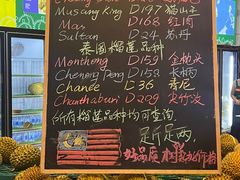 Musang King D197 猫山王
Mas D168 红肉
Sultan D24 苏丹
泰国榴莲品种
Monthong D159 金枕头
Chaneng Peng D158 长柄
Chanee C36 青尼
Chanthaburi D209 尖竹汶
所有榴莲品种均可查询
足斤足两,